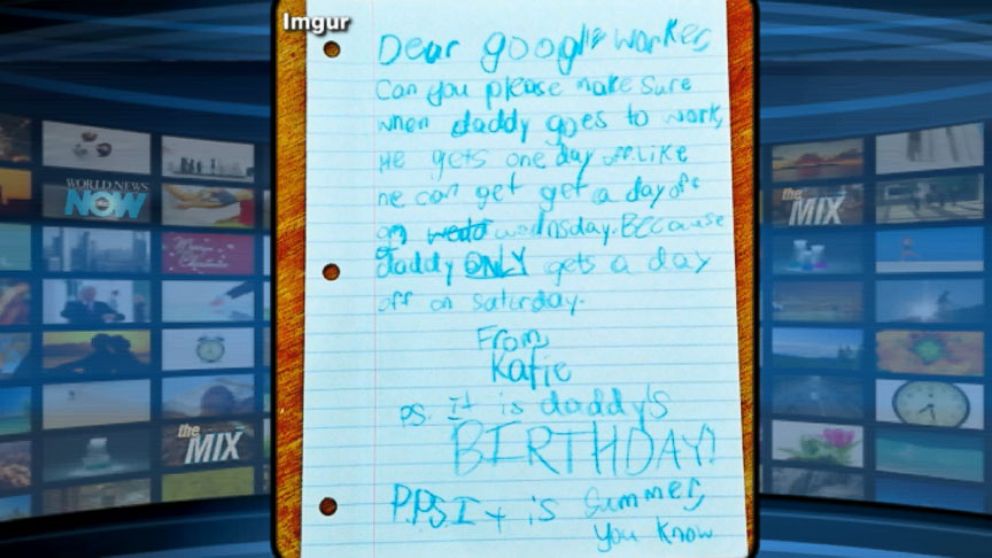 Imgur
Dear google worker,
Can you please make sure
when daddy goes to work,
He gets one day off. Like
he can get get a day off
on wednsday. BECause
daddy ONLY gets a day
off on saturday.
From,
Katie
ps. It is daddy's
BIRTHDAY!
P.PS It is summer,
you know
WORLD NEWS
NOW
the
MIX
the
MIX